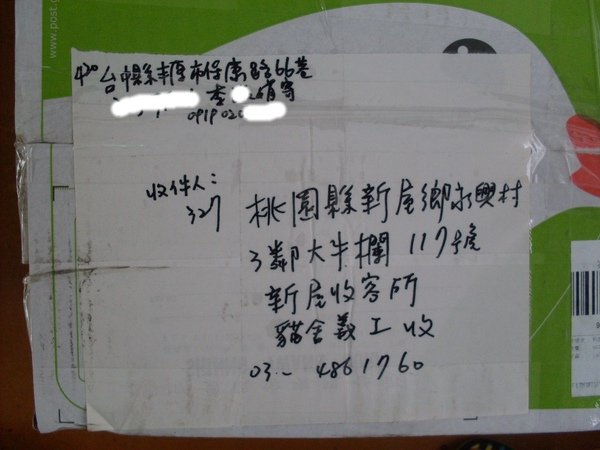 www.post.g
420 台中縣豐原市保康路66巷
李 寄
0919 020
收件人:
327
桃園縣新屋鄉永興村
3鄰大牛欄 117號
新屋收容所
貓舍義工收
03- 4861760